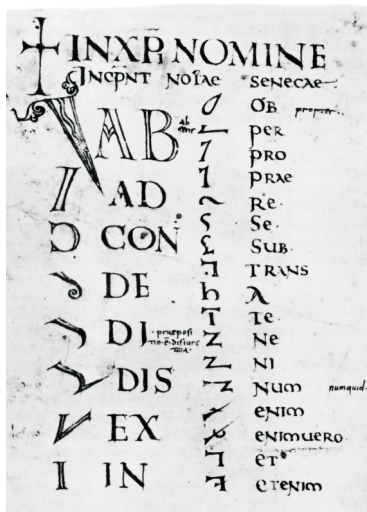 IN XP̄I NOMINE
INCP̄NT NOTAE SENECAE
AB
AD
CON
DE
DI
praepositio ē disiunctiua
DIS
EX
IN
OB propter
PER
PRO
PRAE
RE
SE
SUB
TRANS
A
TE
NE
NI
NUM numquid
ENIM
ENIMUERO
ET
ETENIM